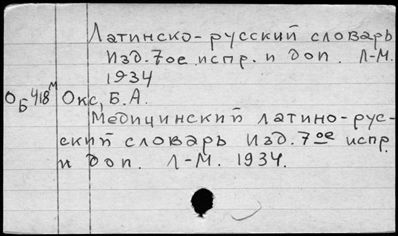 Латинско-русский словарь
Изд. 7ое испр. и доп. Л-М.
1934
ОБ 418м Окс, Б.А.
Медицинский латино-рус-
ский словарь Изд. 7ое испр
и доп. Л-М. 1934.